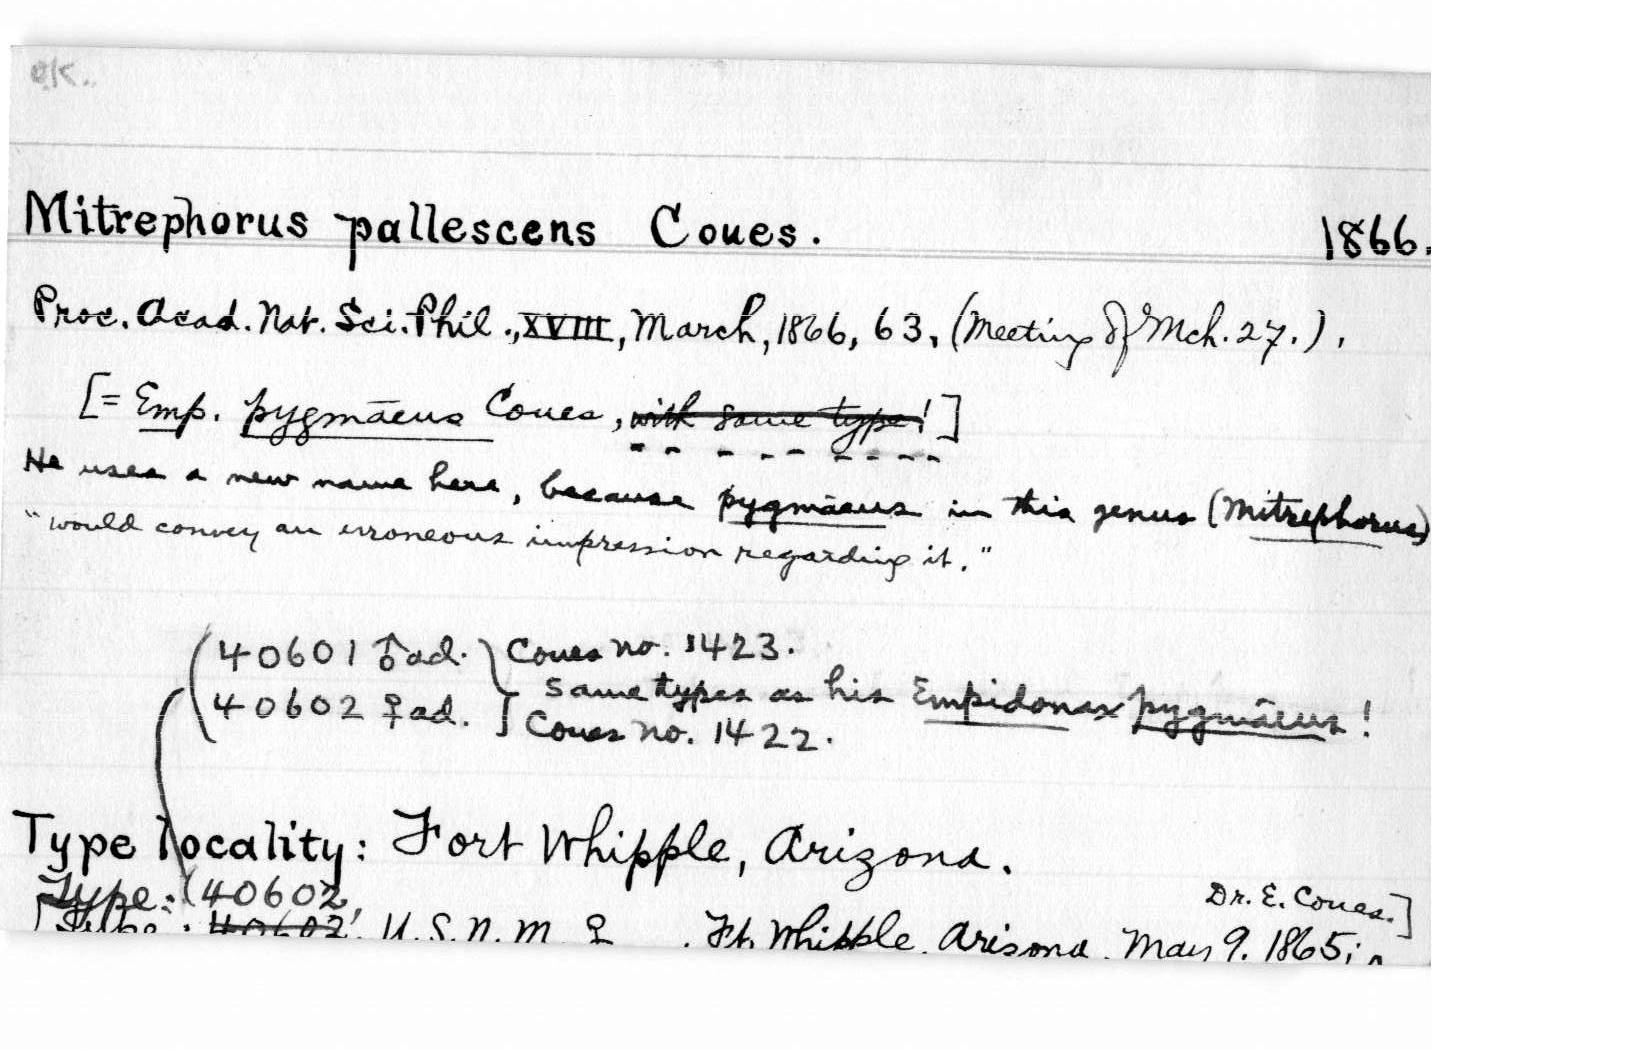 OK.
Mitrephorus pallescens Coues. 1866.
Proc. Acad. Nat. Sci. Phil., XVIII, March, 1866, 63, (Meeting of Mch. 27.),
[= Emp. pygmāeus Coues, with same type!]
He uses a new name here, because pygmāeus in this genus (Mitrephorus)
"would convey an erroneous impression regarding it."
40601 ♂ ad. Coues no. 1423.
Same types as his Empidonax pygmāeus!
40602 ♀ ad. Coues no. 1422.
Type locality: Fort Whipple, Arizona.
Type: (40602, Dr. E. Coues.]
[Type: 40602, U.S.N.M. ♀ . Ft. Whipple, Arizona. May 9. 1865;